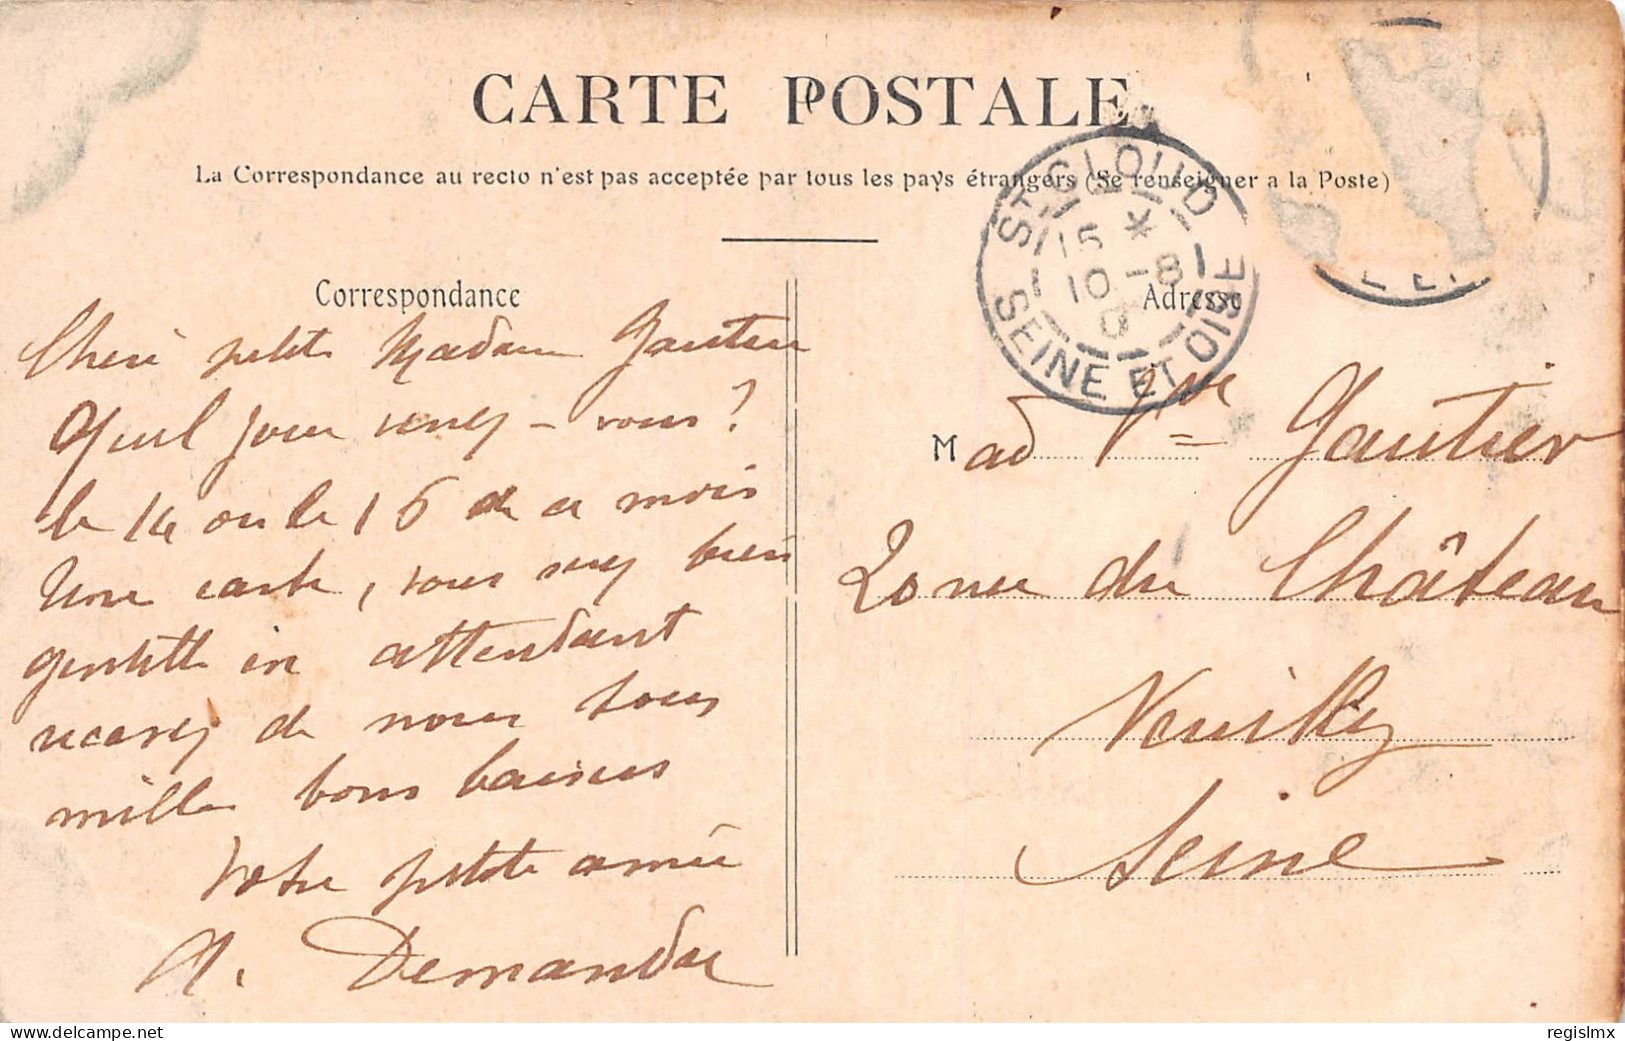 CARTE POSTALE
La Correspondance au recto n'est pas acceptée par tous les pays étrangers (Se renseigner a la Poste)
ST CLOUD
15 *
10 - 8
0
SEINE ET OISE
Correspondance
Adresse
Cheri petite Madame Gautier
Quel jour venez - vous?
le 14 ou le 15 de ce mois
Une carte, vous serez bien
gentille en attendant
recevez de nous tous
mille bons baisers
Votre petite amie
A. Demandre
Mad Vve Gautier
20 rue du Château
Neuilly
Seine
regislmx